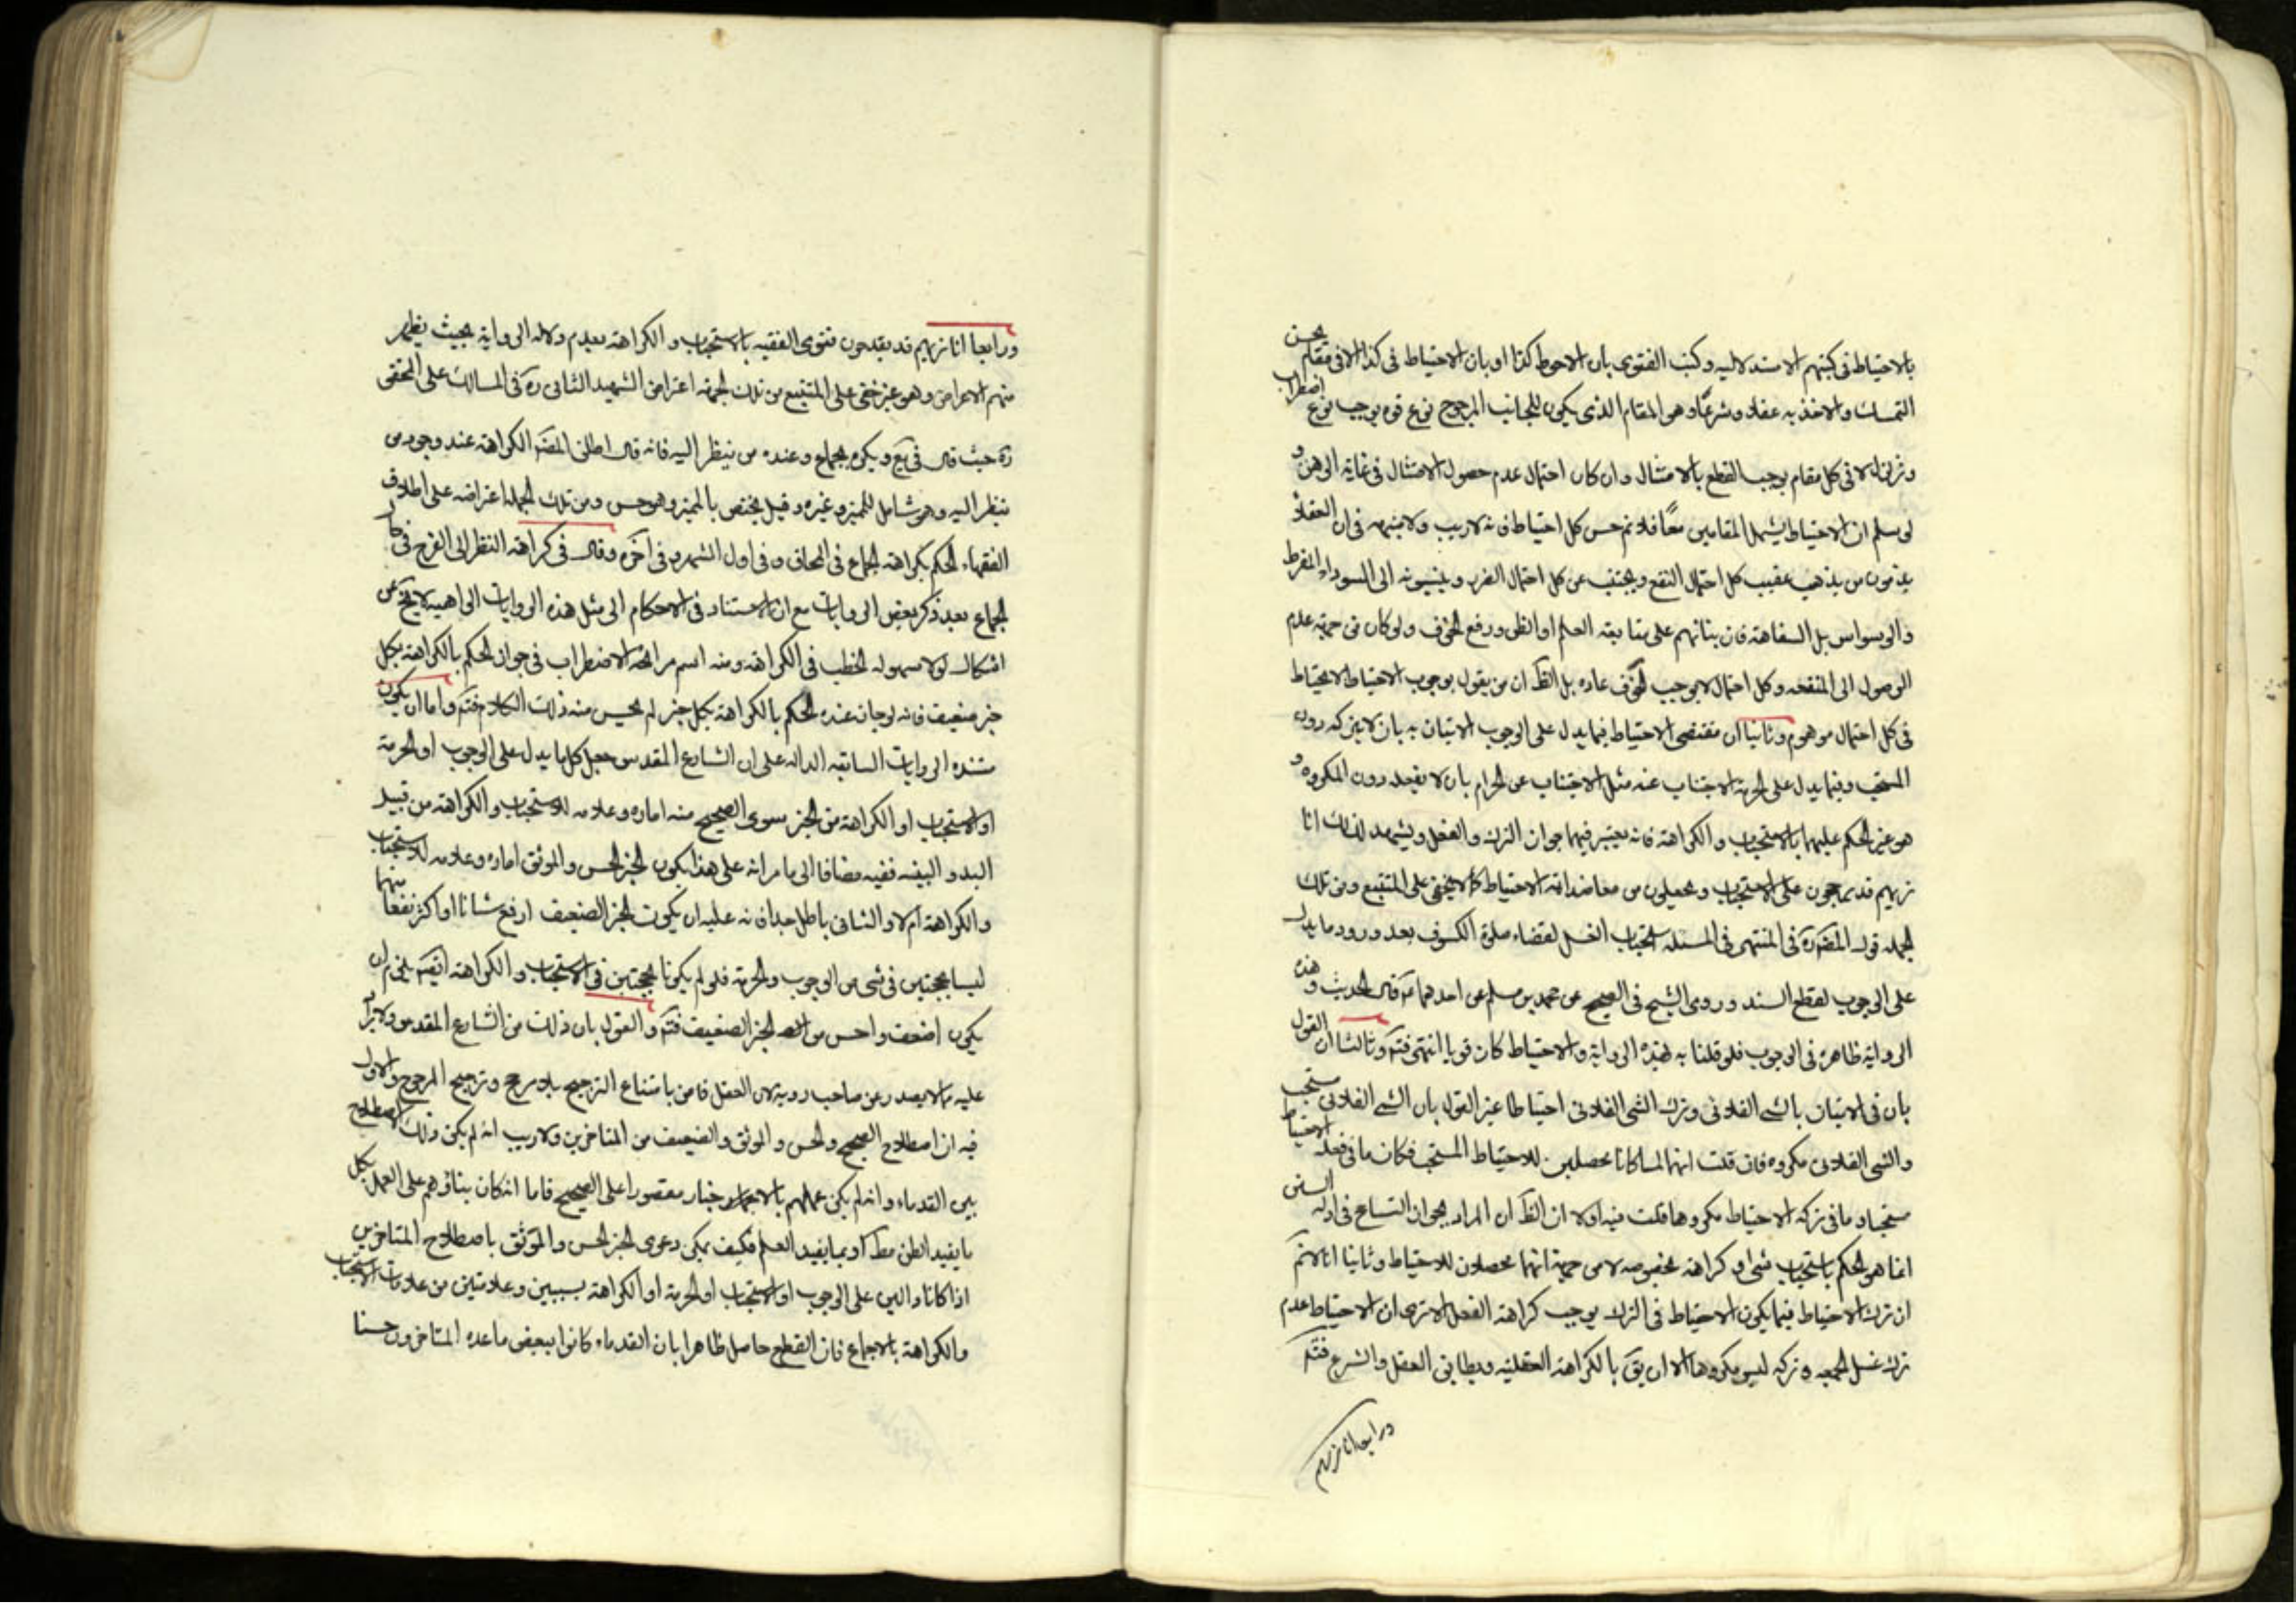 بالاحتياط فى كتبهم الاستدلاليه وكتب الفتوى بان الاحوط كذا او بان الاحتياط فى كذا الا فى مقام يحسن
التمسك والاخذ به عقلا وشرعا وهو المقام الذى يكون للجانب المرجوح نوع قوه يوجب نوع اضطراب
وتزلزل لا فى كل مقام يوجب القطع بالامتثال وان كان احتمال عدم حصول الامتثال فى غاية الوهن و
لو سلم ان الاحتياط يشمل المقامين معا فلا نم حسن كل احتياط فانه لا ريب ولا شبهه فى ان العقلاء
يذمون من يذهب عقيب كل احتمال النفع ويجتنب عن كل احتمال الضرر وينسبونه الى السوداء المفرط
والوسواس بل السفاهة فان بنائهم على متابعة العلم او الظن ورفع الخوف ولو كان من جهة عدم
الوصول الى المنفعه وكل احتمال لا يوجب الخوف عاده بل الظ ان من يقول بوجوب الاحتياط لا يحتاط
فى كل احتمال موهوم وثانيا ان مقتضى الاحتياط فيما يدل على الوجوب الاتيان به بان لا يتركه دون
المستحب وفيما يدل على الحرمة الاجتناب عنه مثل الاجتناب عن الحرام بان لا يفعله دون المكروه و
هو غير الحكم عليهما بالاستحباب والكراهة فانه يعتبر فيهما جواز الترك والفعل ويشهد لذلك انا
نريهم قد يحملون على الاستحباب ويجعلون من معاضداته الاحتياط كما لا يخفى على المتتبع ومن تلك
الجمله قول المص ره فى المنتهى فى المسئله استحباب الغسل لقضاء صلوة الكسوف بعد ورود ما يدل
على الوجوب لقطع السند وروى الشيخ فى الصحيح عن محمد بن مسلم عن احدهما ع قال الحديث وهذه
الرواية ظاهرة فى الوجوب فلو قلنا به لهذه الرواية والاحتياط كان قويا انتهى فتم وثالثا ان القول
بان فى الاتيان بالشى الفلانى وترك الشى الفلانى احتياطا غير القول بان الشى الفلانى مستحب
والشى الفلانى مكروه فان قلت انهما لما كانا محصلين للاحتياط المستحب فكان ما فى فعله الاحتياط
مستحبا وما فى تركه الاحتياط مكروها قلت فيه اولا ان الظ ان المراد بجواز التسامح فى ادلة السنن
انما هو الحكم باستحباب شى او كراهة بخصوصه لا من جهة انهما محصلان للاحتياط وثانيا انا لا نم
ان ترك الاحتياط فيما يكون الاحتياط فى الترك يوجب كراهة الفعل الا ترى ان الاحتياط عدم
ترك غسل الجمعه وتركه ليس مكروها الا ان يق بالكراهة العقليه ويطابق العقل والشرع فتم
ورابعا انا نريهم
ورابعا انا نريهم قد يقدحون فتوى الفقيه بالاستحباب والكراهة بعدم دلاله الرواية بحيث يظهر
منهم الاعراض وهو غير خفى على المتتبع من تلك الجمله اعتراض الشهيد الثانى ره فى المسالك على المحقق
ره حيث قال فى يع ويكره الجماع وعنده من ينظر اليه فانه قال اطلق المص الكراهة عند وجود من
ينظر اليه وهو شامل للمميز وغيره وقيل يختص بالمميز وهو حسن ومن تلك الجمله اعتراضه على اطلاق
الفقهاء الحكم بكراهة الجماع فى المحاق وفى اول الشهر وفى آخره وقال فى كراهة النظر الى الفرج فى حال
الجماع بعد ذكر بعض الروايات مع ان الاستناد فى الاحكام الى مثل هذه الروايات الواهية لا يخ عن
اشكال لولا سهوله الخطب فى الكراهة ومنه اسم مرائحة الاضطراب فى جواز الحكم بالكراهة بكل
خبر ضعيف فانه لو جاز عنده الحكم بالكراهة بكل خبر لم يحسن منه ذلك الكلام فتم واما ان يكون
مستنده الروايات السابقه الداله على ان الشارع المقدس جعل كل ما يدل على الوجوب او الحرمة
او الاستحباب او الكراهة من الخبر سوى الصحيح منه اماره وعلامه للاستحباب والكراهة من قبيل
اليد والبينه ففيه مضافا الى ما مر انه على هذا يكون الخبر الحسن والموثق اماره وعلامه للاستحباب
والكراهة ام لا والثانى باطل جدا فانه عليه ان يكون الخبر الضعيف ارفع شانا او اكثر نفعا منهما
ليسا بحجتين فى شى من الوجوب والحرمة فلو لم يكونا بحجتين فى الاستحباب والكراهة ايض يلزم ان
يكون اضعف واحسن من الخبر الضعيف فتم والقول بان ذلك من الشارع المقدس ولا يرد
عليه مما لا يصدر عن صاحب رويه لان العقل قاض بامتناع الترجيح بلا مرجح وترجيح المرجوح والاول
فيه ان اصطلاح الصحيح والحسن والموثق والضعيف من المتاخرين ولا ريب انه لم يكن ذلك الاصطلاح
بين القدماء وانه لم يكن عملهم بالاخبار مقصورا على الصحيح فاما انه كان بناؤهم على العمل بكل
ما يفيد الظن مط او بما يفيد العلم فكيف يمكن دعوى الخبر الحسن والموثق باصطلاح المتاخرين
اذا كانا دالين على الوجوب او الاستحباب او الحرمة او الكراهة بسببين وعلامتين من علامات الاستحباب
والكراهة بالاجماع فان القطع حاصل ظاهرا بان القدماء كانوا ببعض ما عده المتاخرون حسنا